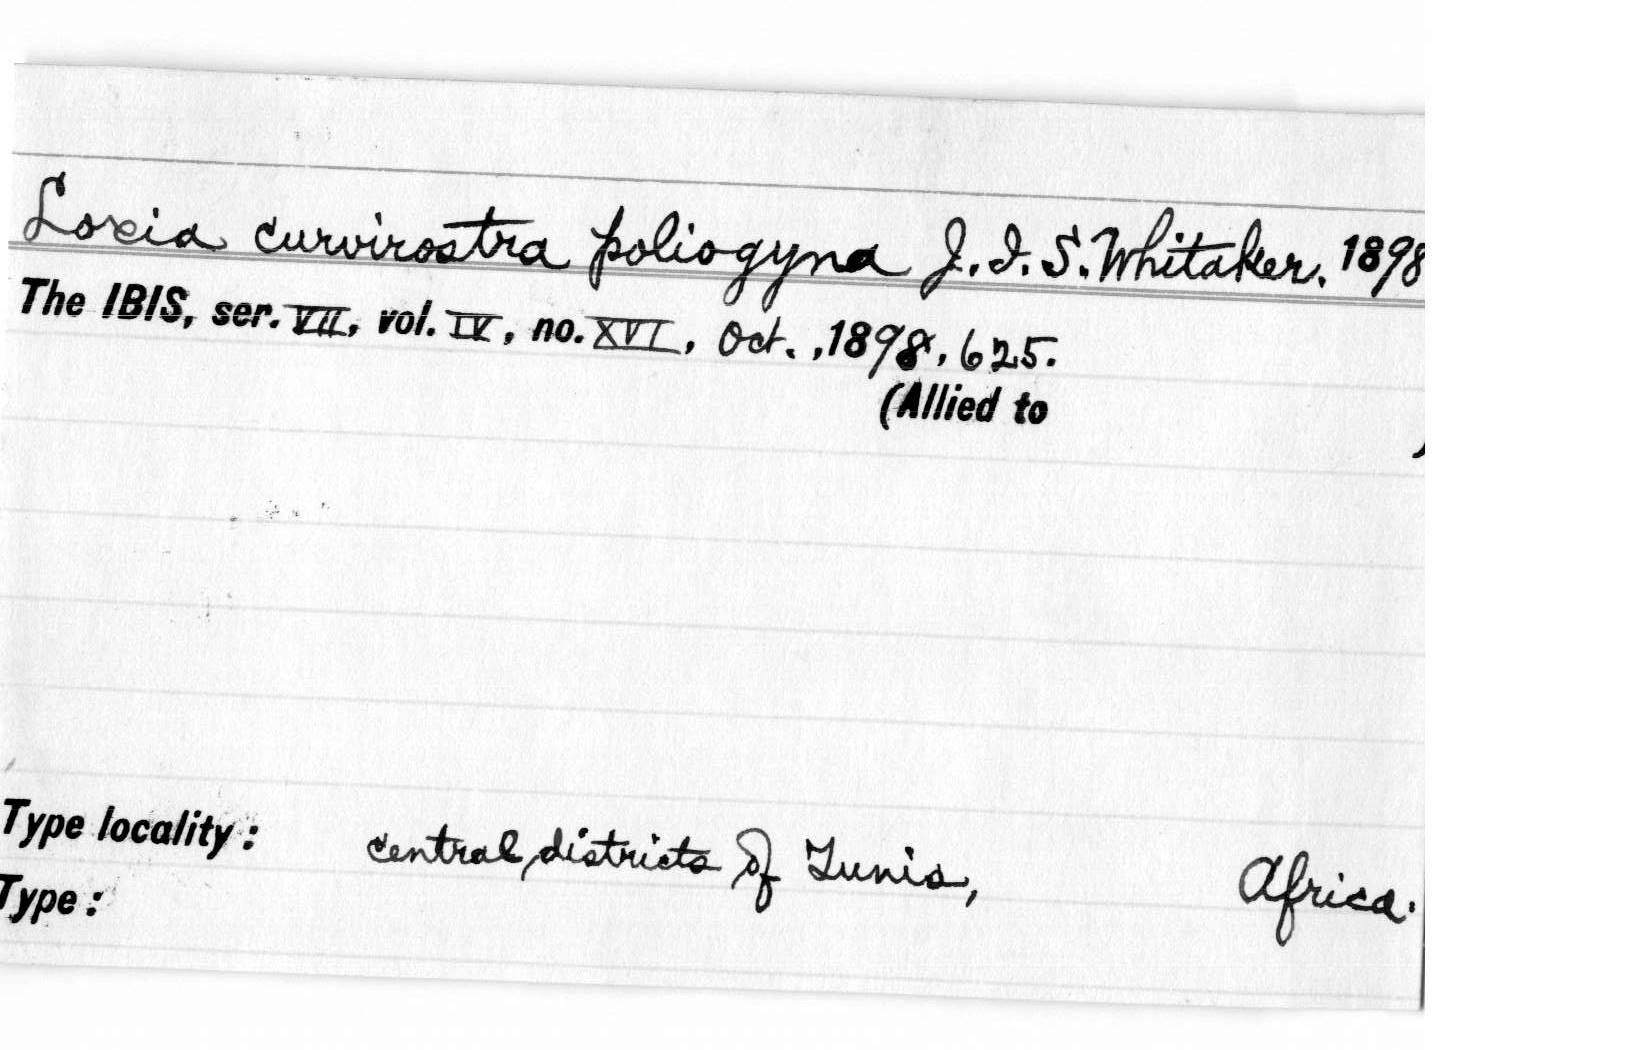 Loxia curvirostra poliogyna J.I.S. Whitaker. 1898
The IBIS, ser. VII, vol. IV, no. XVI, Oct., 1898, 625.
(Allied to )
Type locality: central districts of Tunis, Africa.
Type: